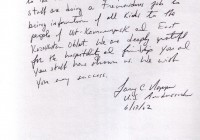 staff are doing a tremendous job
being information of all kinds to the
people of Ust-Kamenogorsk and East
Kazakhstan Oblast. We are deeply grateful
for the hospitality and friendship you and
your staff have shown us. We wish
you any success.
Larry C. Napper
U.S. Ambassador